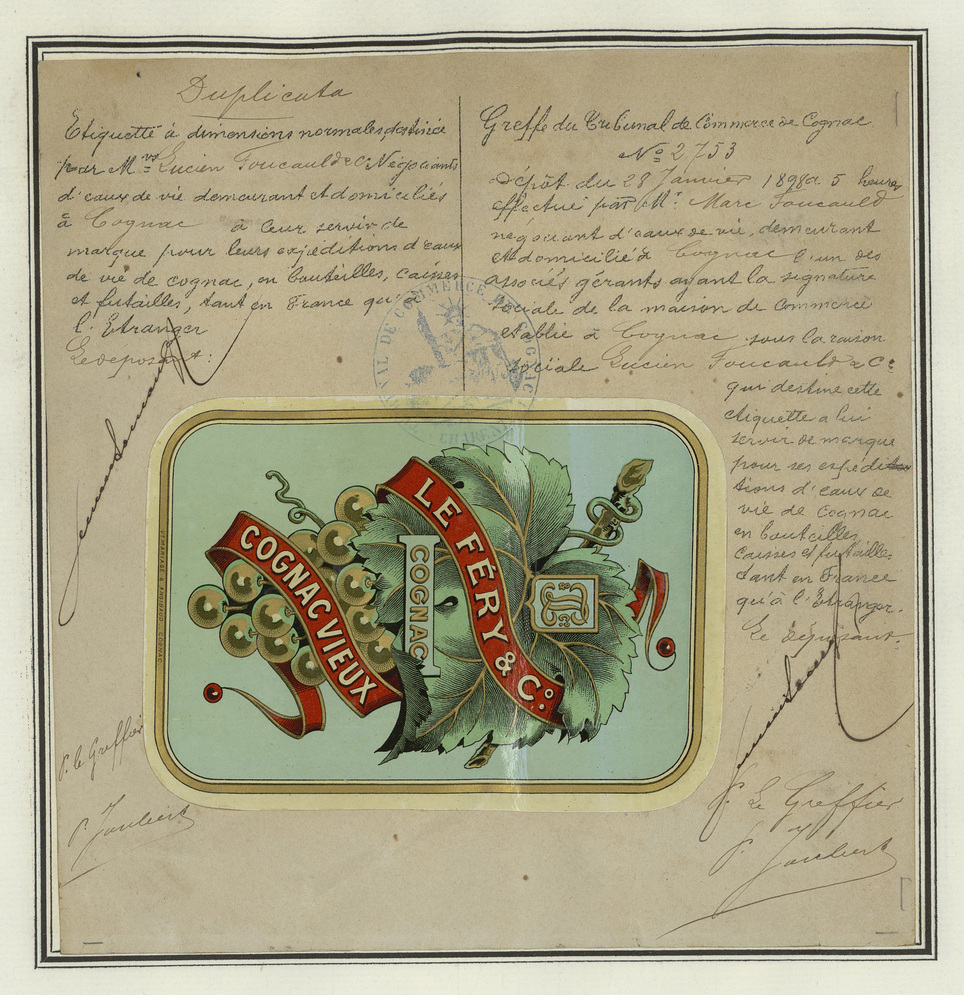 Duplicata
Etiquette à dimensions normales destinée
par M.rs Lucien Foucauld & Cie Négociants
d'eaux de vie demeurant et domiciliés
à Cognac à leur servir de
marque pour leurs expéditions d'eaux
de vie de cognac, en bouteilles, caisses
et futailles, tant en France qu'
l'Etranger
Le déposant:
P. le Greffier
P. Joubert
Greffe du Tribunal de Commerce de Cognac
No 2753
Dépôt du 28 Janvier 1898 à 5 heures
effectué par M. Marc Foucauld
négociant d'eaux de vie, demeurant
et domicilié à Cognac l'un des
associés gérants ayant la signature
sociale de la maison de commerce
établie à Cognac sous la raison
sociale Lucien Foucauld & Cie
qui destine cette
étiquette à lui
servir de marque
pour ses expédi
tions d'eaux de
vie de Cognac
en bouteilles,
caisses et futailles
tant en France
qu'à l'Etranger.
Le déposant.
P. Le Greffier
P. Joubert
TRIBUNAL DE COMMERCE DE COGNAC
LE FÉRY & Co.
COGNAC
COGNAC VIEUX